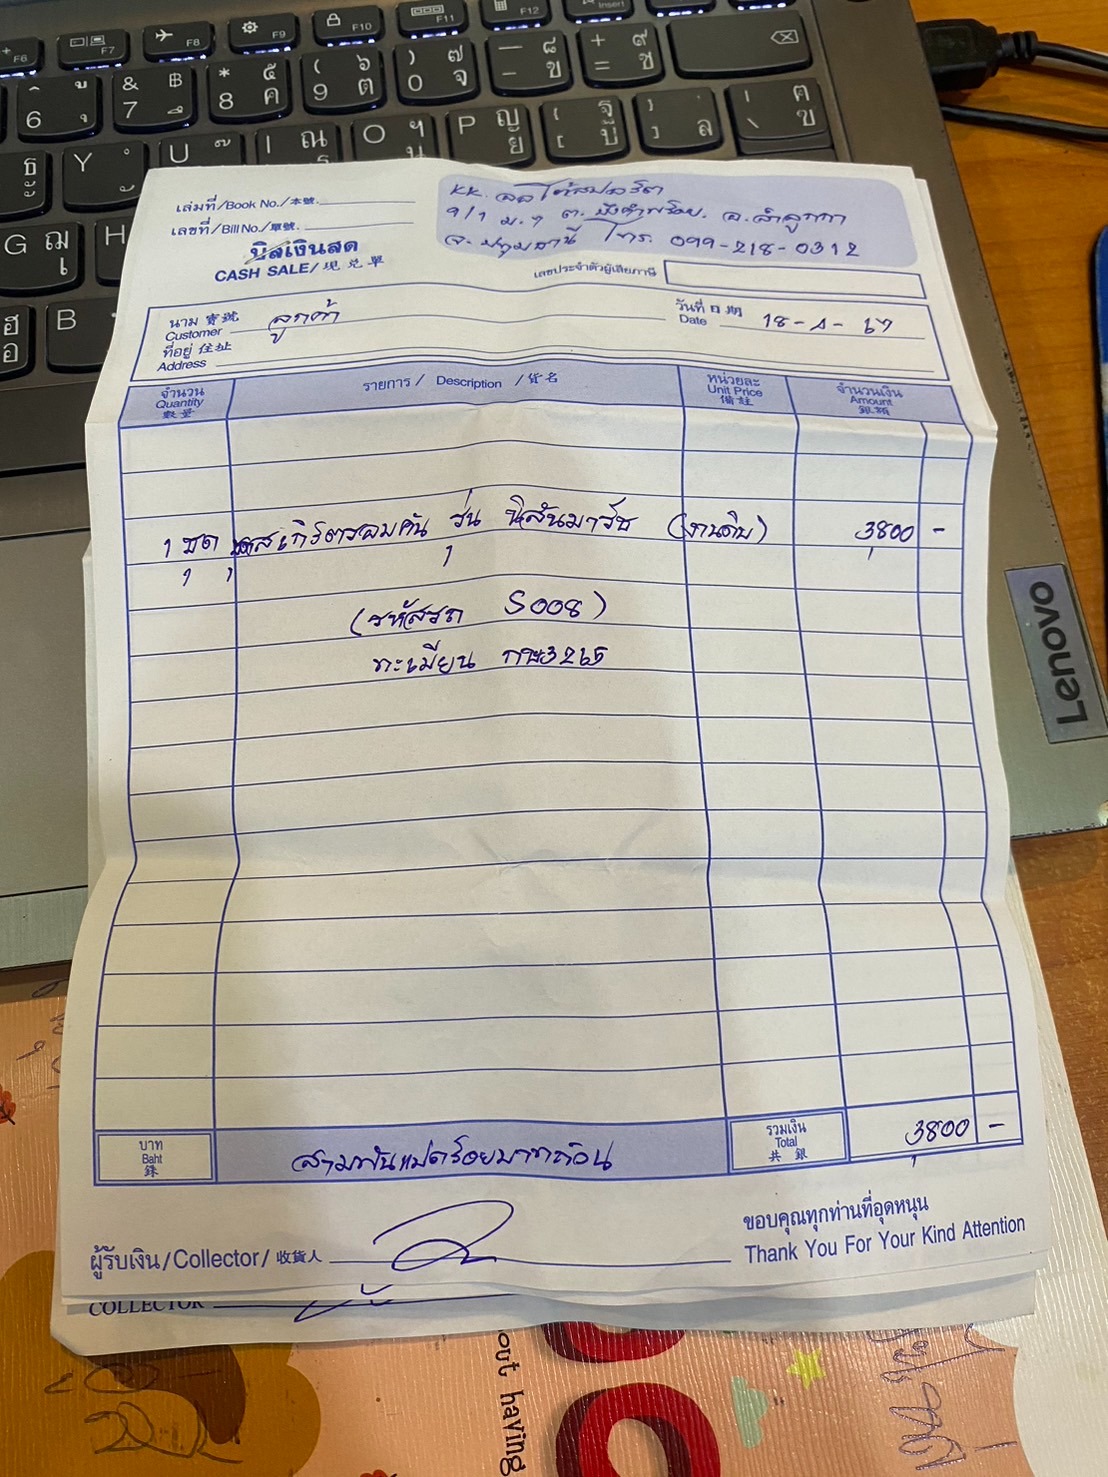 F6 F7 F8 F9 F10 F11 F12 Insert
6 & 7 ฿ * 8 ค ( 9 ต ) 0 จ - ข + = ช
Y U I O P ญ ย ฐ บ ล ฃ ฅ
G H B
Lenovo
เล่มที่/Book No./本號.
เลขที่/Bill No./單號.
บิลเงินสด
CASH SALE/現兌單
KK. ออโต้สปอร์ต
9/1 ม.9 ต. บึงคำพร้อย. อ.ลำลูกกา
จ. ปทุมธานี โทร. 099-218-0312
เลขประจำตัวผู้เสียภาษี
นาม 寶號
Customer ลูกค้า
วันที่ 日期
Date 18-4-67
ที่อยู่ 住址
Address
จำนวน
Quantity
數量
รายการ / Description / 貨名
หน่วยละ
Unit Price
備註
จำนวนเงิน
Amount
銀額
1 ชุด ชุดสเกิร์ตรอบคัน รุ่น นิสสันมาร์ช (งานดิบ) 3800 -
(รหัสรถ S008)
ทะเบียน กษ3265
บาท
Baht
銖
สามพันแปดร้อยบาทถ้วน
รวมเงิน
Total
共銀
3800 -
ผู้รับเงิน/Collector/收貨人
ขอบคุณทุกท่านที่อุดหนุน
Thank You For Your Kind Attention
COLLECTOR
out having